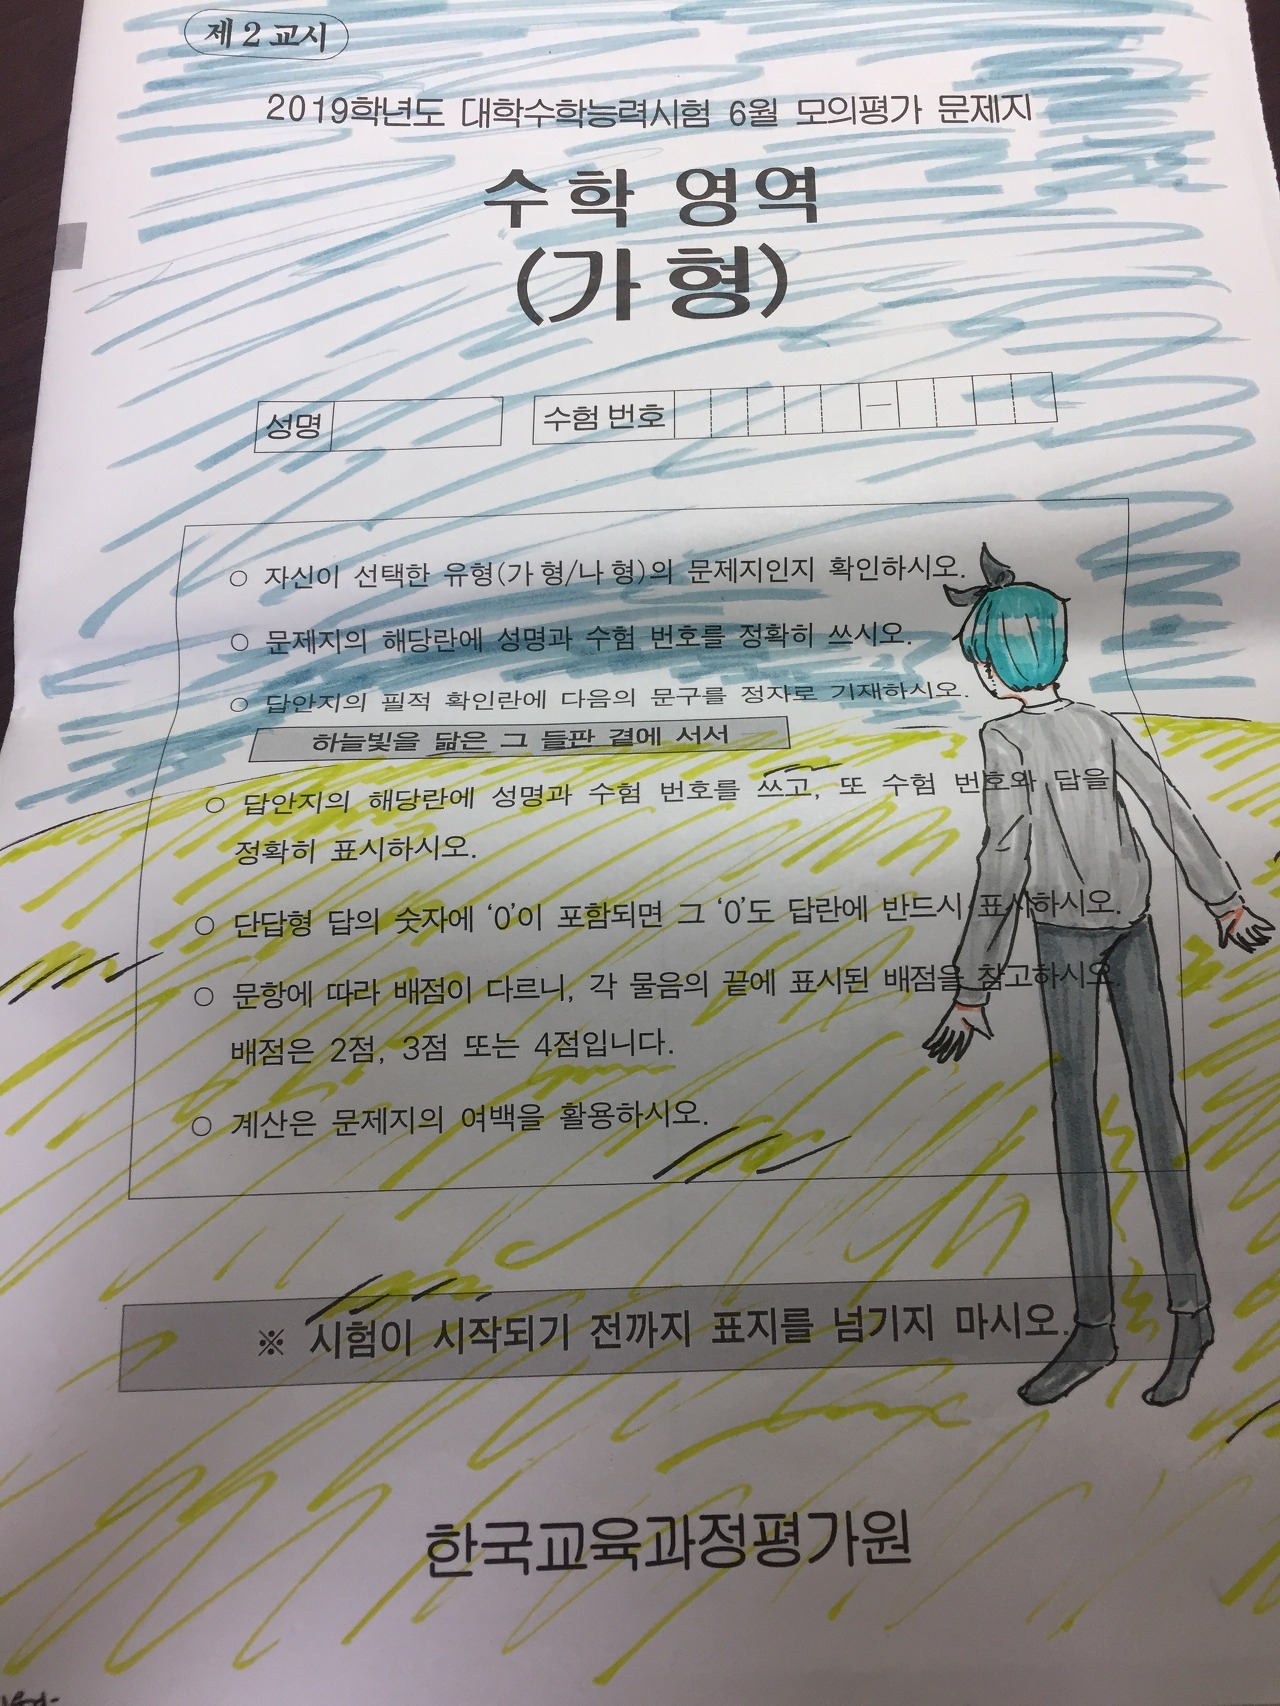 제 2 교시
2019학년도 대학수학능력시험 6월 모의평가 문제지
수학 영역
(가 형)
성명
수험 번호 －
○ 자신이 선택한 유형(가 형/나 형)의 문제지인지 확인하시오.
○ 문제지의 해당란에 성명과 수험 번호를 정확히 쓰시오.
○ 답안지의 필적 확인란에 다음의 문구를 정자로 기재하시오.
하늘빛을 닮은 그 들판 곁에 서서
○ 답안지의 해당란에 성명과 수험 번호를 쓰고, 또 수험 번호와 답을
정확히 표시하시오.
○ 단답형 답의 숫자에 ‘0’이 포함되면 그 ‘0’도 답란에 반드시 표시하시오.
○ 문항에 따라 배점이 다르니, 각 물음의 끝에 표시된 배점을 참고하시오.
배점은 2점, 3점 또는 4점입니다.
○ 계산은 문제지의 여백을 활용하시오.
※ 시험이 시작되기 전까지 표지를 넘기지 마시오.
한국교육과정평가원